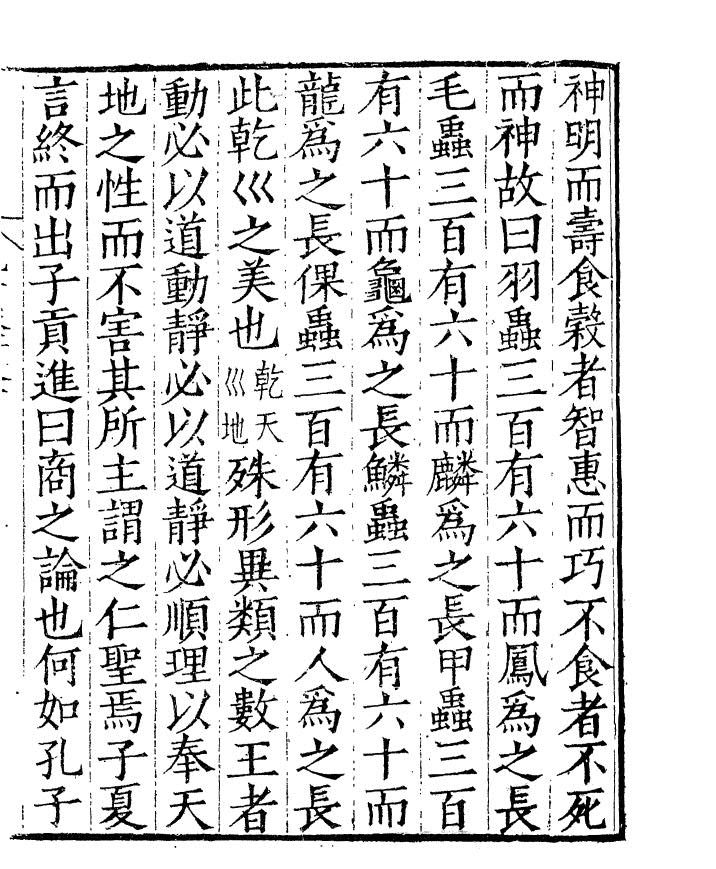 神明而壽食榖者智惠而巧不食者不死
而神故曰羽蟲三百有六十而鳳爲之長
毛蟲三百有六十而麟爲之長甲蟲三百
有六十而龜爲之長鱗蟲三百有六十而
龍爲之長倮蟲三百有六十而人爲之長
此乾巛之美也乾天巛地殊形異類之數王者
動必以道動靜必以道靜必順理以奉天
地之性而不害其所主謂之仁聖焉子夏
言終而出子貢進曰商之論也何如孔子